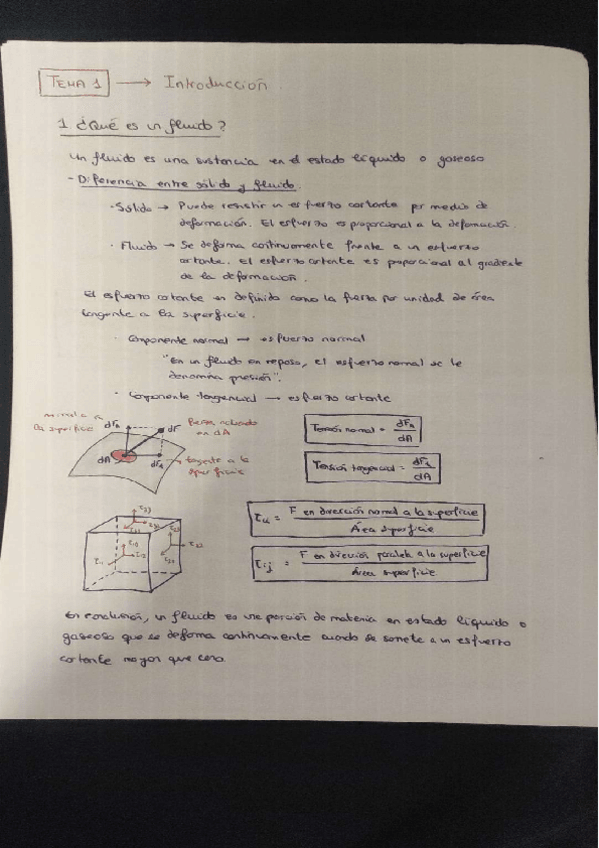 TEMA 1 → Introducción.
1 ¿Qué es un fluido?
Un fluido es una sustancia en el estado líquido o gaseoso
- Diferencia entre sólido y fluido.
· Sólido → Puede resistir un esfuerzo cortante por medio de
deformación. El esfuerzo es proporcional a la deformación.
· Fluido → Se deforma continuamente frente a un esfuerzo
cortante. El esfuerzo cortante es proporcional al gradiente
de la deformación.
El esfuerzo cortante en definida como la fuerza por unidad de área
tangente a la superficie.
· Componente normal → esfuerzo normal
"En un fluido en reposo, el esfuerzo normal se le
denomina presión".
· Componente tangencial → esfuerzo cortante
normal a
la superficie
dFn
dF
Fuerza actuando
en dA
dA
dFt
tangente a la
superficie
Tensión normal = dFn / dA
Tensión tangencial = dFt / dA
τii = F en dirección normal a la superficie / Área superficie
τij = F en dirección paralela a la superficie / Área superficie
En conclusión, un fluido es una porción de materia en estado líquido o
gaseoso que se deforma continuamente cuando se somete a un esfuerzo
cortante mayor que cero.